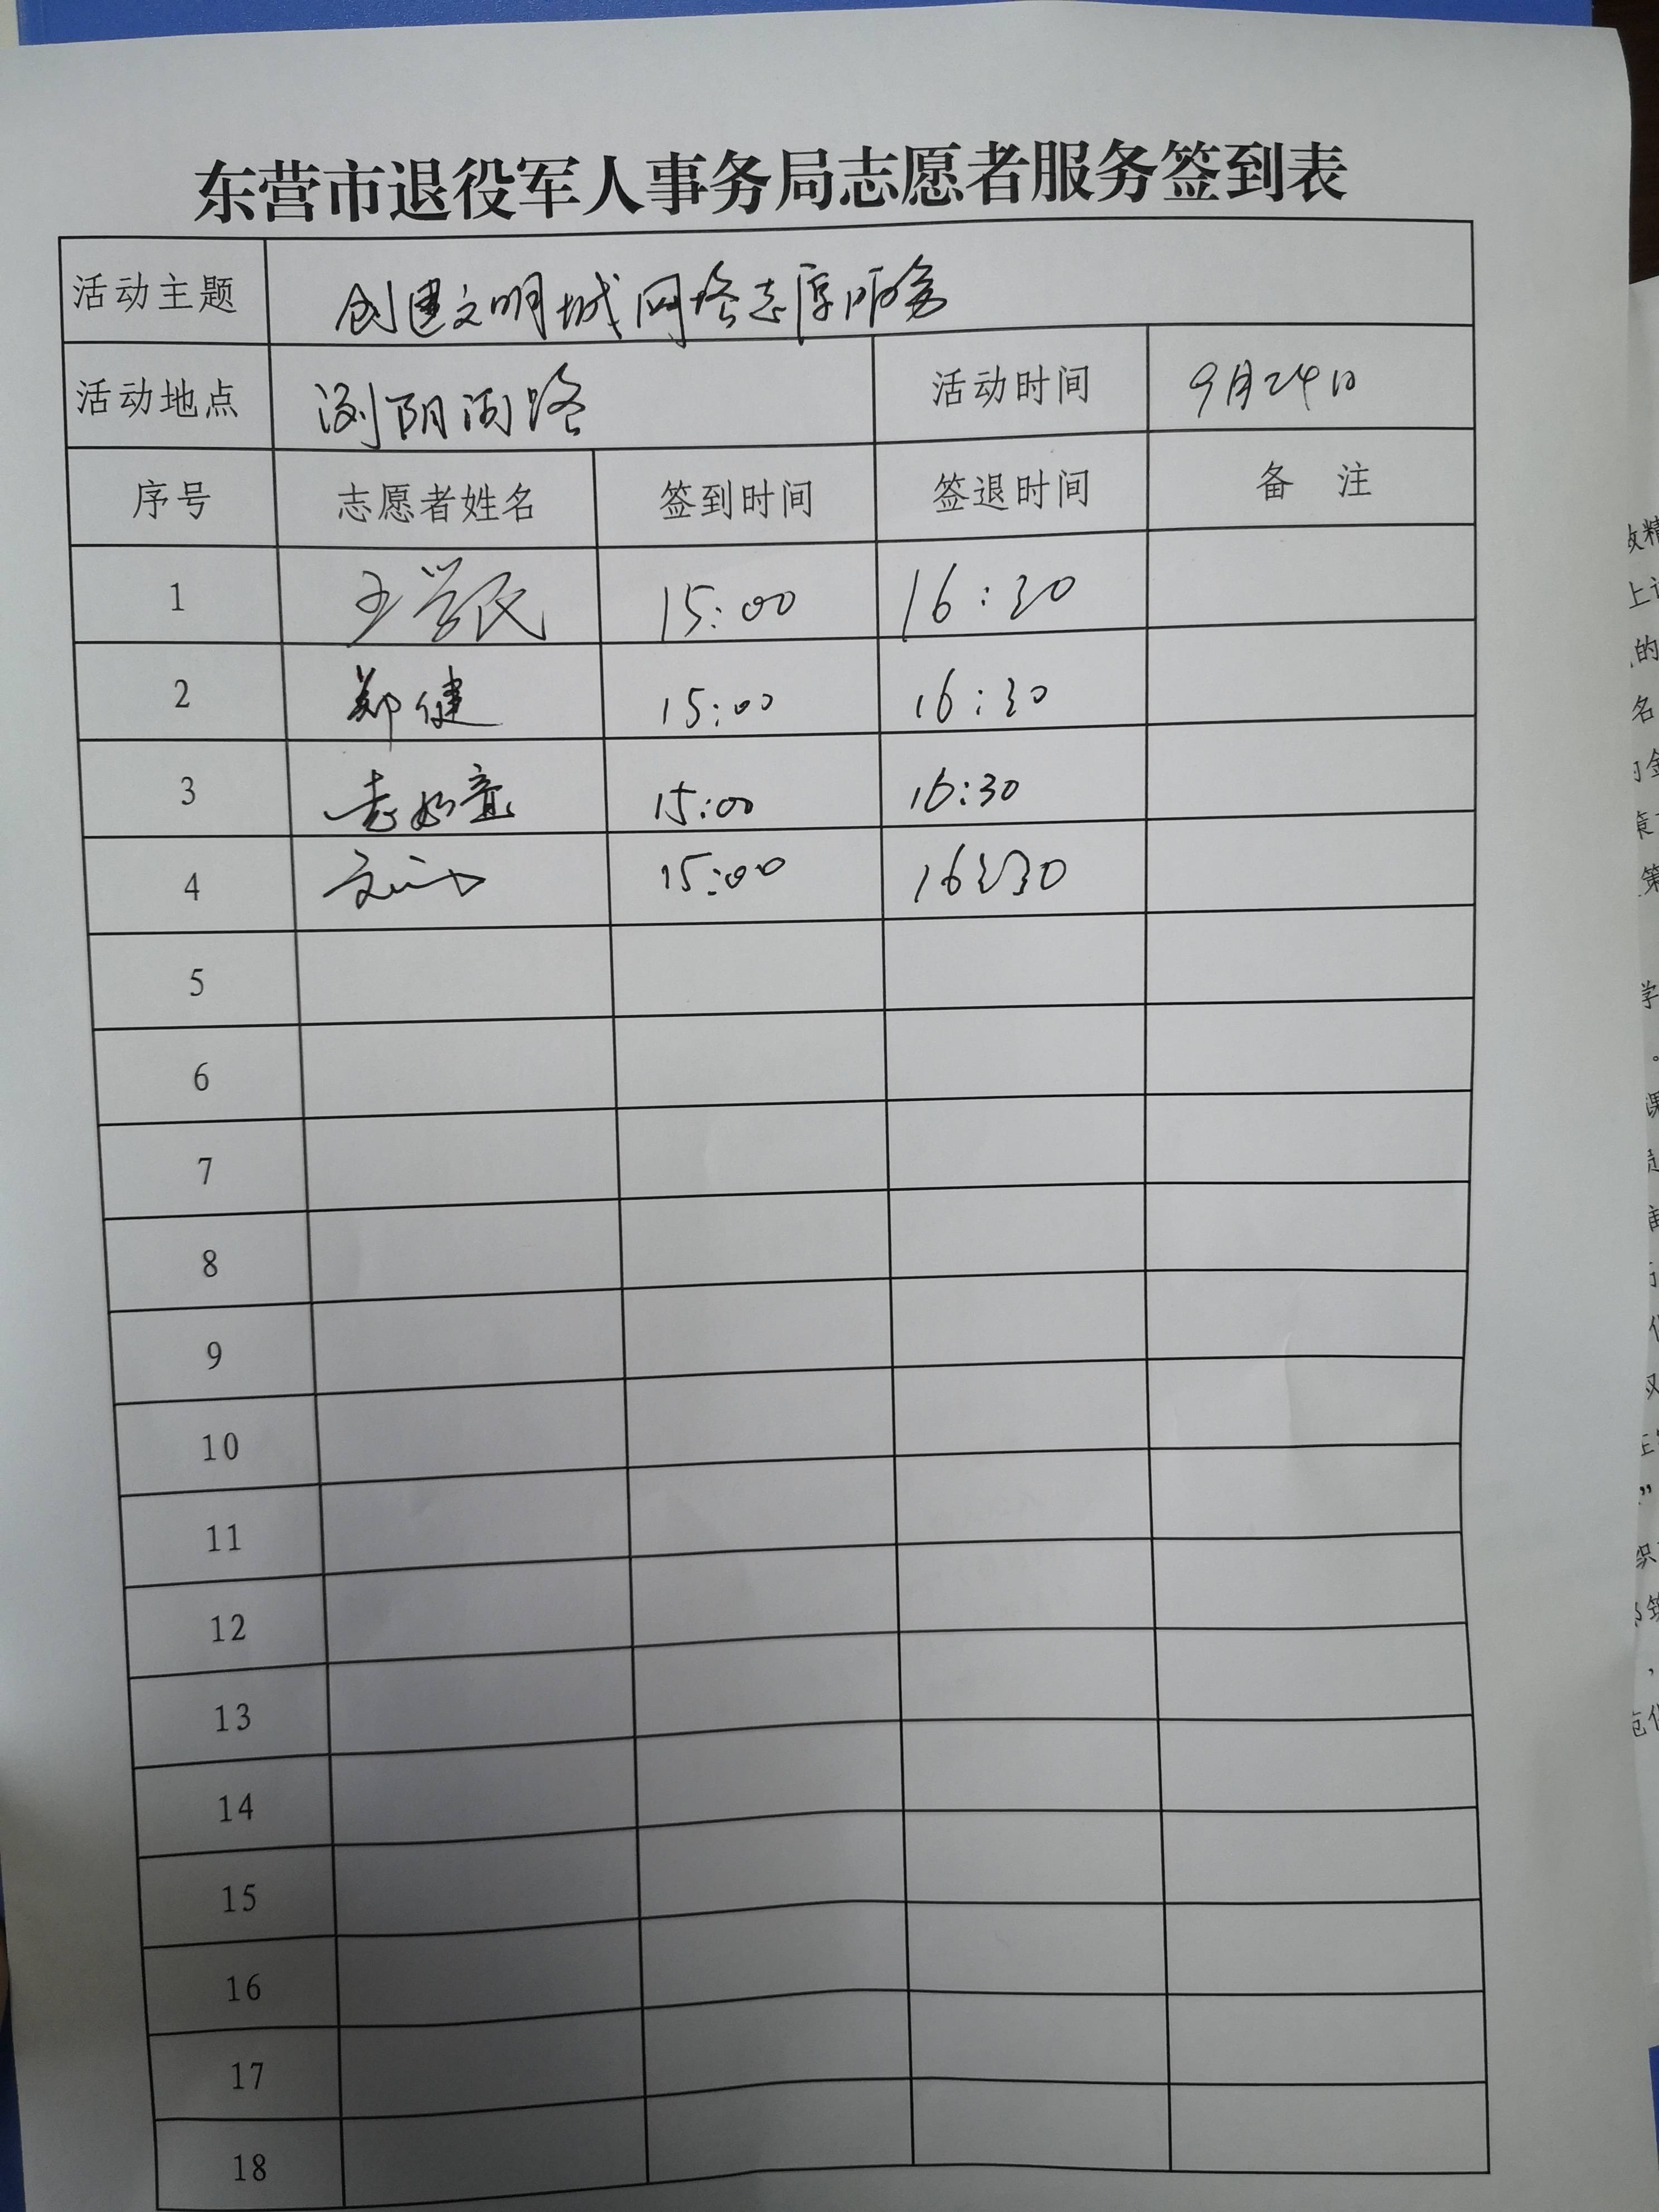 东营市退役军人事务局志愿者服务签到表
活动主题 创建文明城网络志愿服务
活动地点 浏阳河路 活动时间 9月24日
序号 志愿者姓名 签到时间 签退时间 备 注
1 王学民 15:00 16:30
2 郑健 15:00 16:30
3 15:00 16:30
4 15:00 16:30
5
6
7
8
9
10
11
12
13
14
15
16
17
18